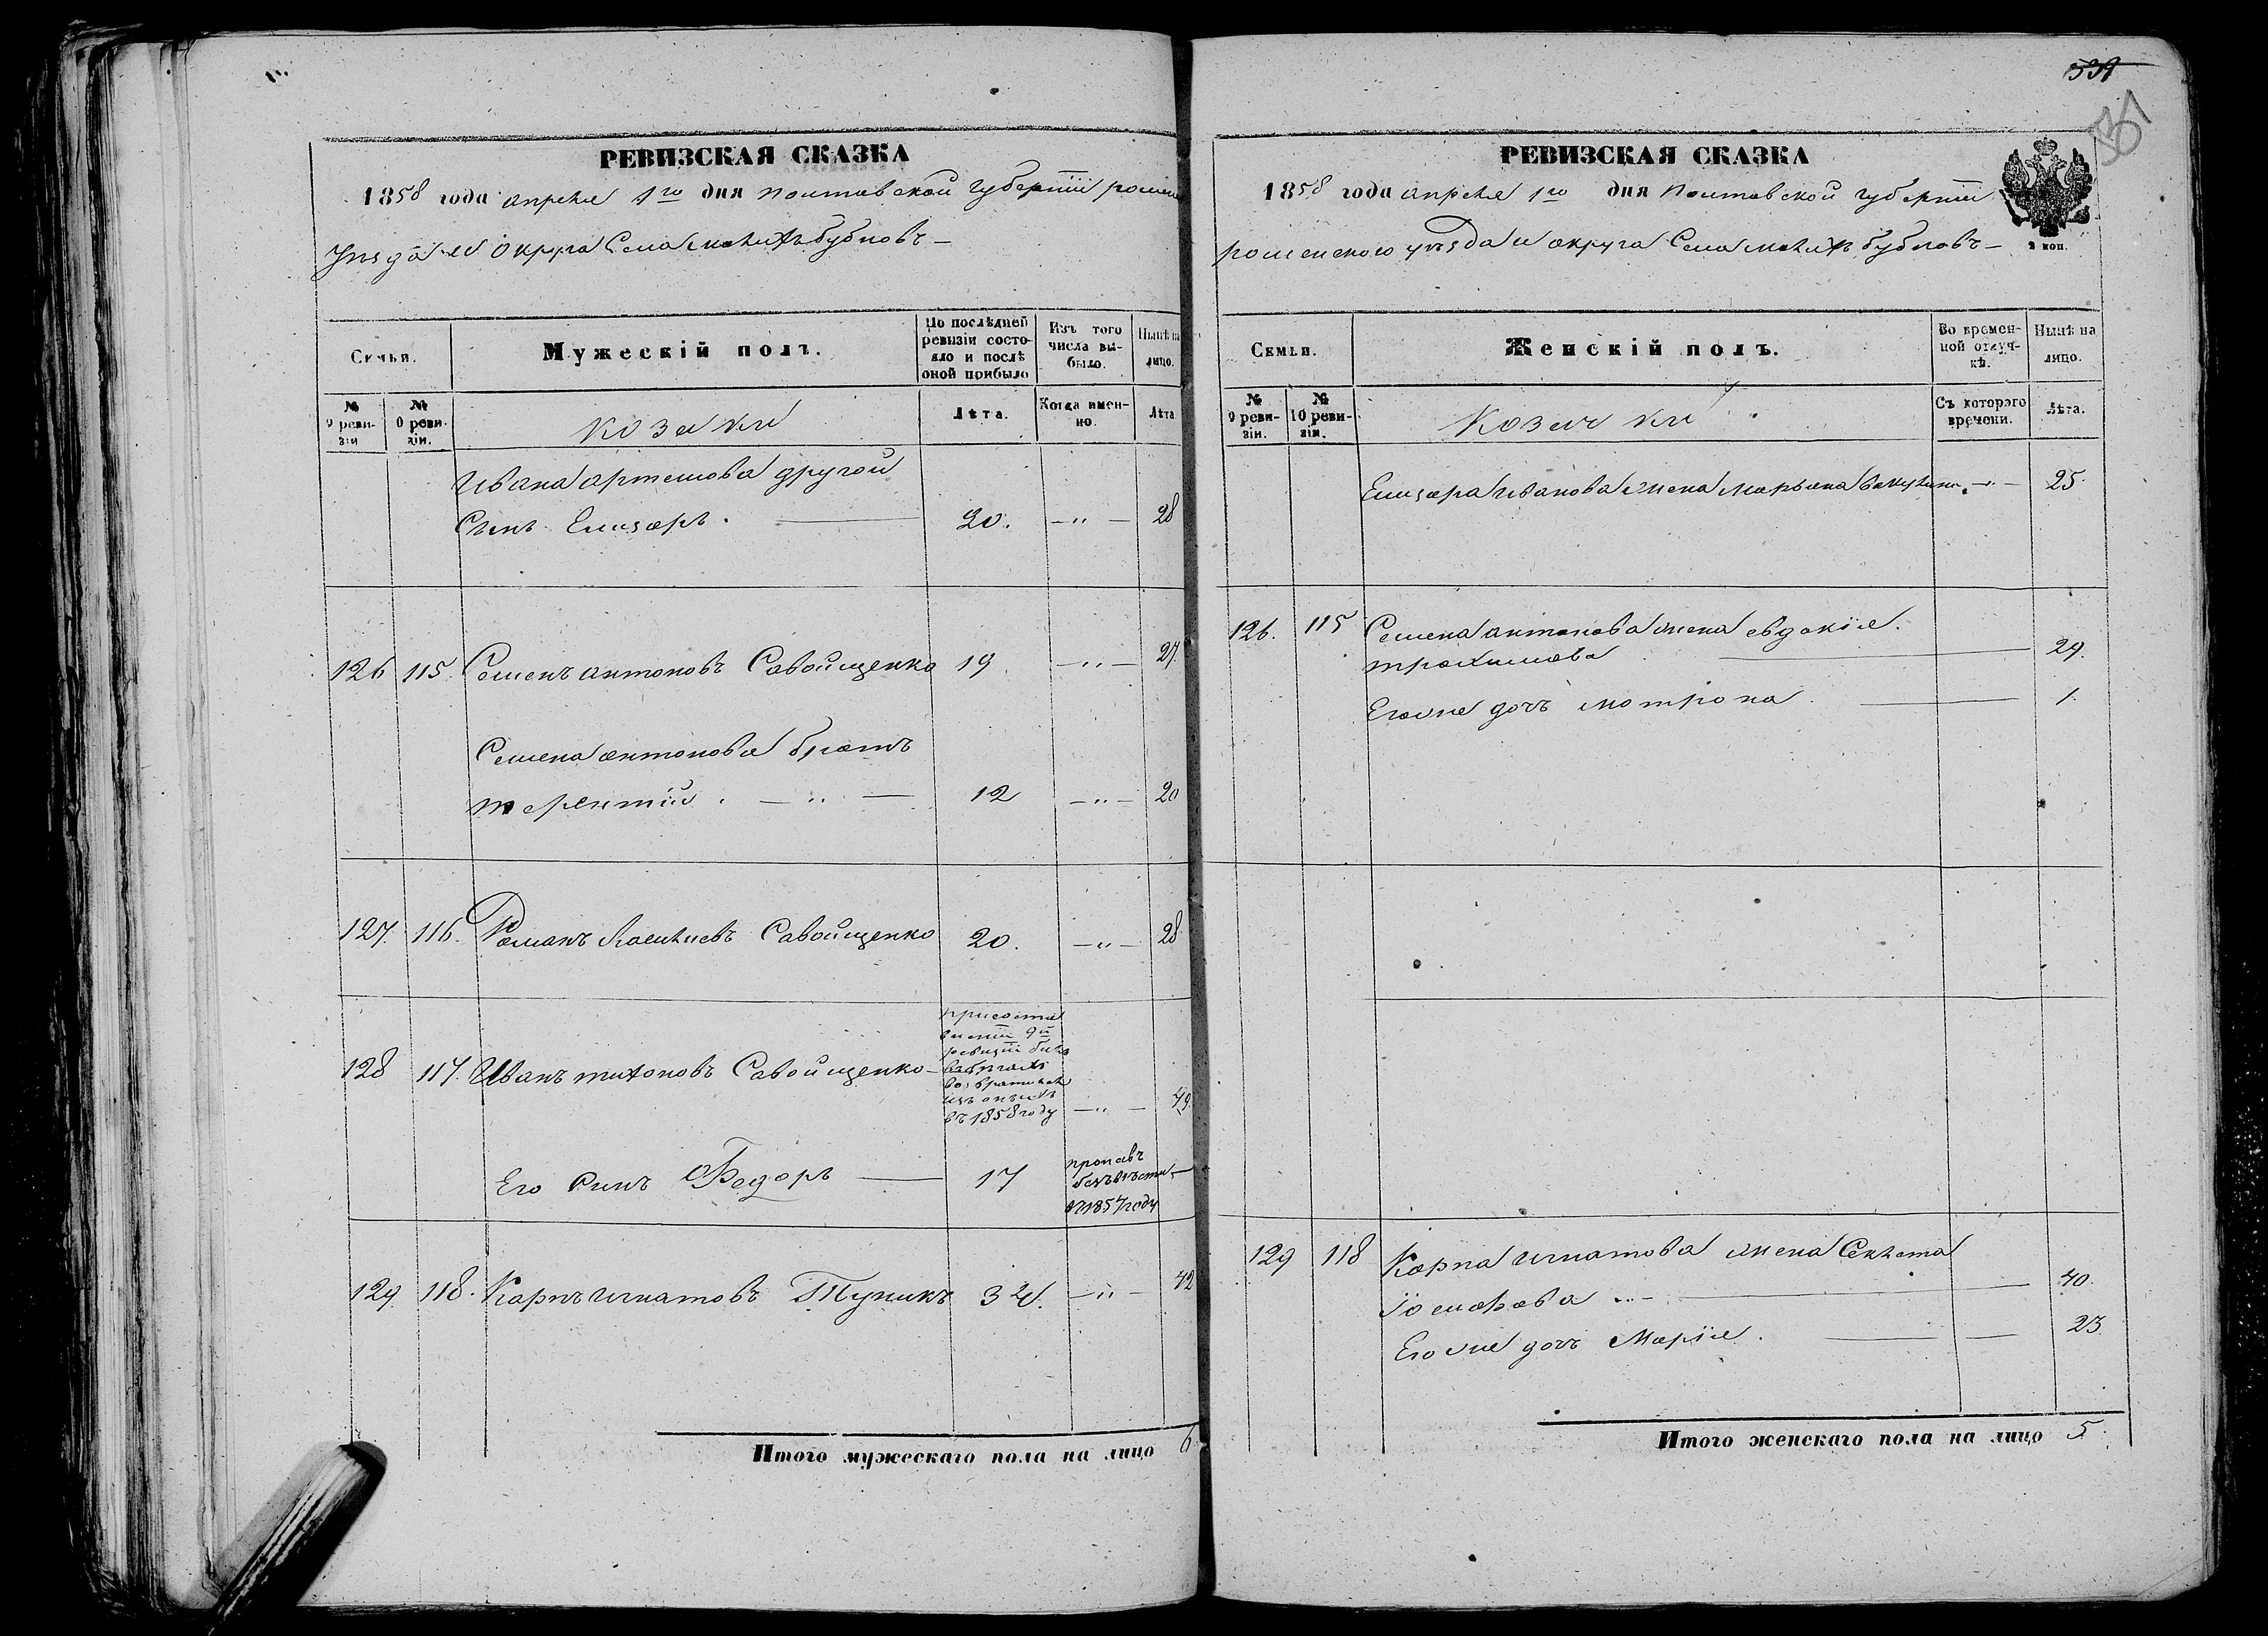 РЕВИЗСКАЯ СКАЗКА
1858 года апреля 1го дня Полтавской Губернии ромен
Уезда и Округа Села малихъ бубновъ
Семьи.
Мужескій полъ.
По послѣдней ревизіи состояло и послѣ оной прибыло
Изъ того числа выбыло.
Нынѣ на лицо.
№ 9 ревизіи
№ 10 ревизіи.
козаки
Лѣта.
Когда именно.
Лѣта
Ивана артемова другой
Синъ Елизаръ. 20. —"— 28
126 115. Семенъ антоновъ Савойщенко 19 —"— 27.
Семена антонова братъ
терентій . —"— 12 —"— 20
127. 116. Романъ Савойщенко 20. —"— 28
128 117. Иванъ тихоновъ Савойщенко
при соста
вленіи 9й
ревизіи билъ
въ бѣгахъ
возвратился
изъ онихъ
въ 1858 году —"— 49
Его синъ Федоръ 17
пропавъ
безъ вѣсти
въ 1857 году
129. 118. Карпъ игнатовъ Тупикъ 34. —"— 42
Итого мужескаго пола на лицо 6.
531
531
РЕВИЗСКАЯ СКАЗКА
1858 года апреля 1го дня Полтавской губерніи
роменского уѣзда и округа Села малихъ бубновъ
2 коп.
Семьи.
Женскій полъ.
Во временной отлучкѣ.
Нынѣ на лицо.
№ 9 ревизіи.
№ 10 ревизіи.
козачки
Съ котораго времени.
Лѣта.
Елизара Иванова жена Марьяна —"— 25.
126. 115 Семена антонова жена евдокія
трохимова 29.
Его же дочъ мотрона 1.
129 118 Карпа игнатова жена Секлета
40.
Его же дочъ Марія. 23.
Итого женскаго пола на лицо 5.